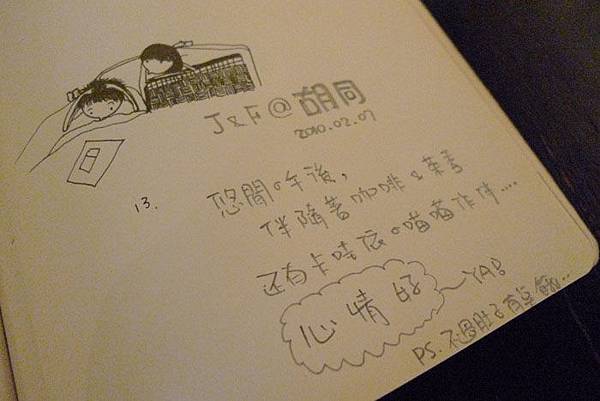 J&F@胡同
2010.02.07
13.
悠閒の午後,
伴隨著咖啡&茱蒂
還有卡哇依の喵喵作伴....
心情好
YA!
PS. 不過肚子有點餓...